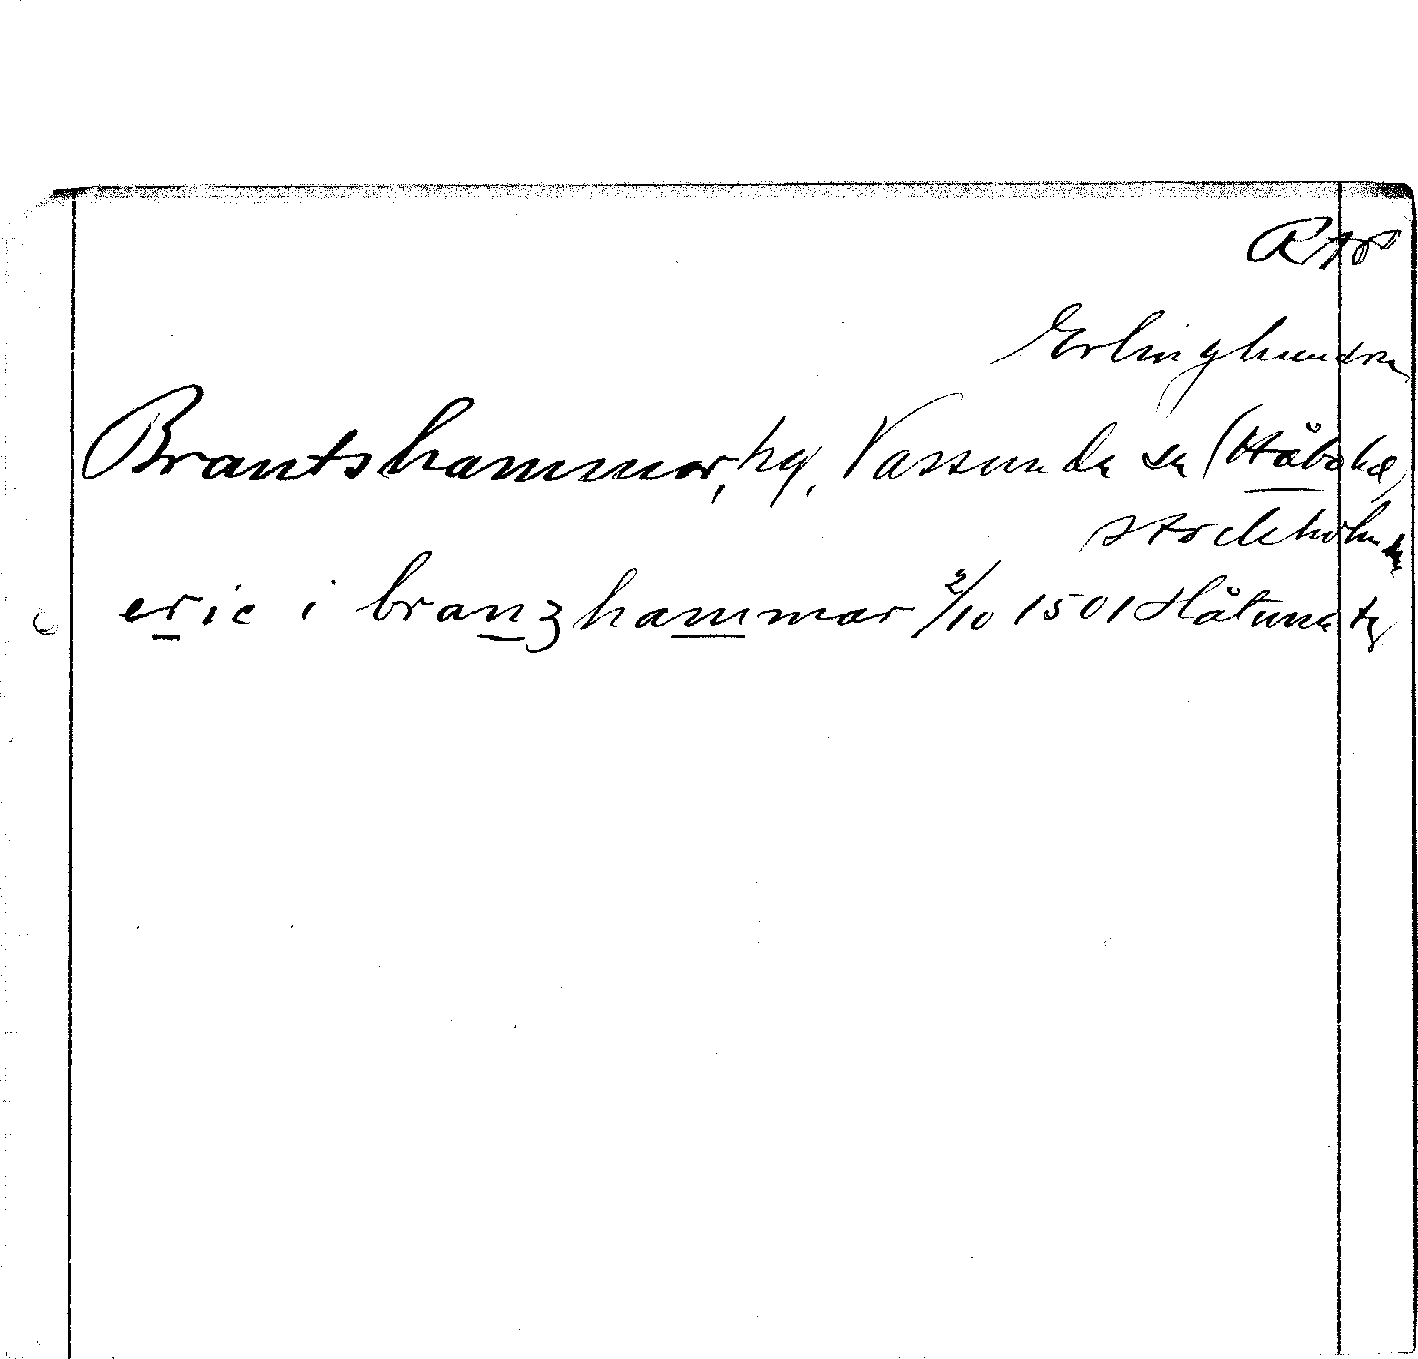 RAP
Erlinghundra
Brantshammar, hg, Vassunda sn (Håbo hd)
Stockholms
eric i branzhammar 2/10 1501 Håtuna tg